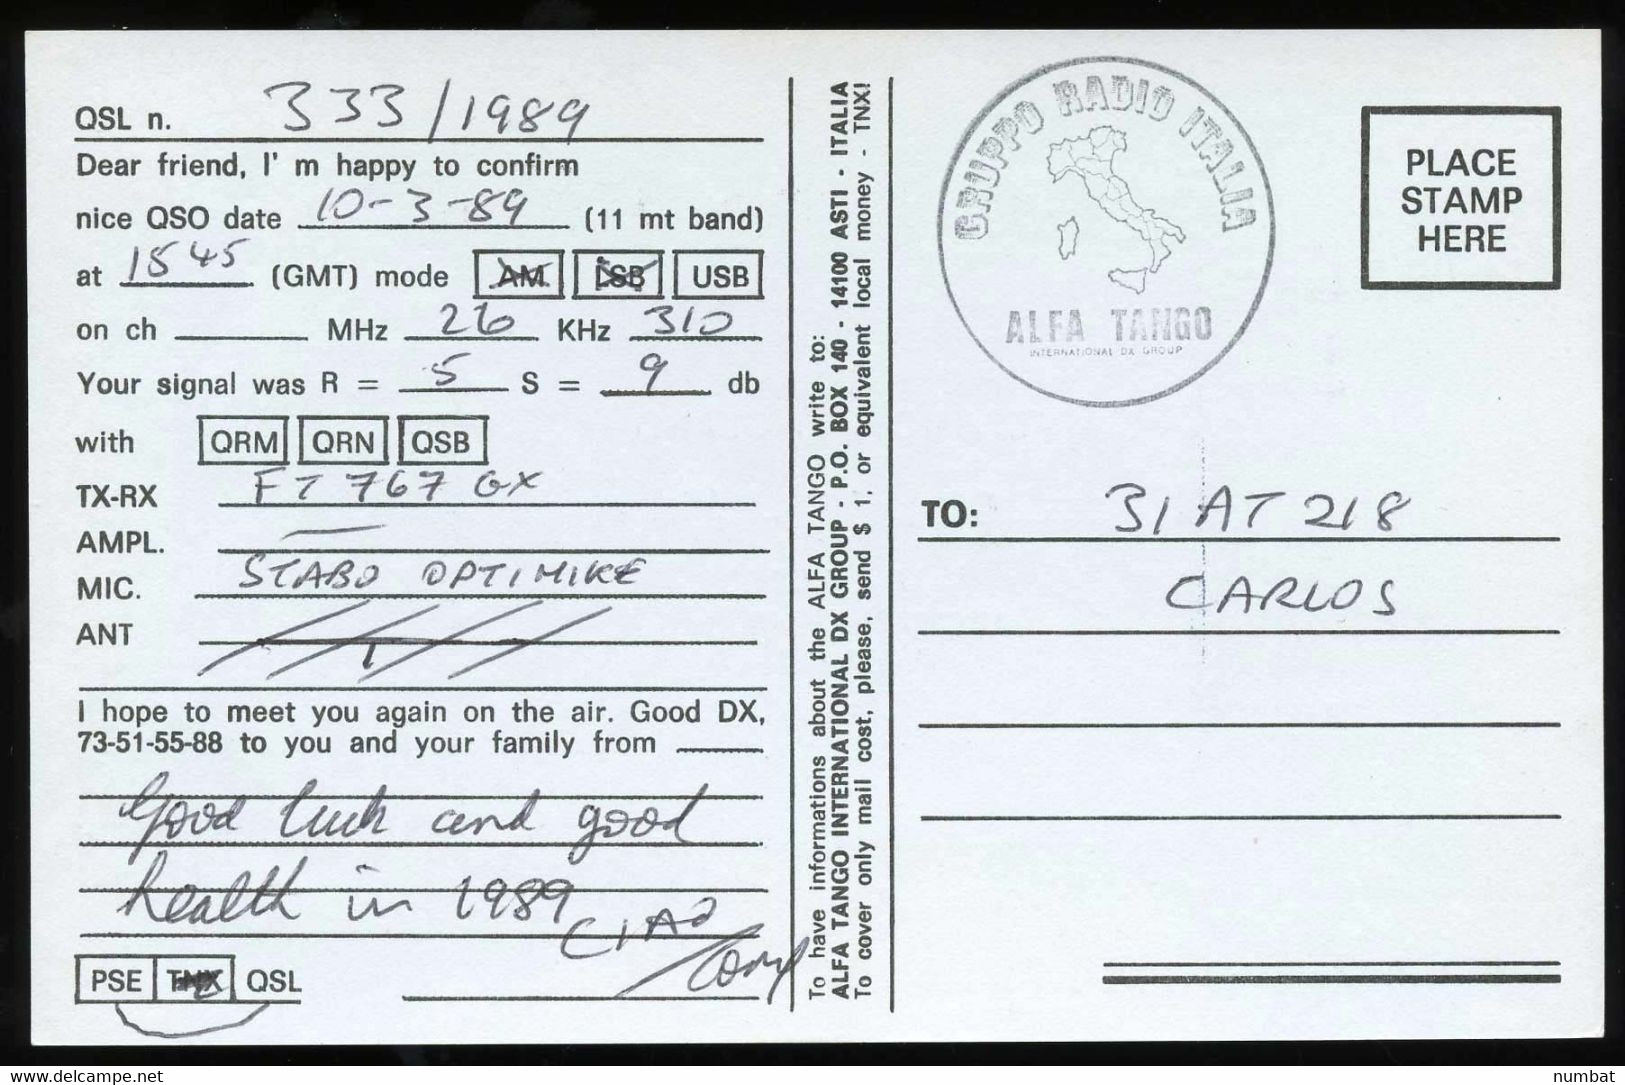 QSL n. 333/1989
Dear friend, I' m happy to confirm
nice QSO date 10-3-89 (11 mt band)
at 1845 (GMT) mode AM LSB USB
on ch MHz 26 KHz 310
Your signal was R = 5 S = 9 db
with QRM QRN QSB
TX-RX FT 767 GX
AMPL. —
MIC. STABO OPTIMIKE
ANT
I hope to meet you again on the air. Good DX,
73-51-55-88 to you and your family from
Good luck and good
health in 1989
CIAO
PSE TNX QSL
To have informations about the ALFA TANGO write to:
ALFA TANGO INTERNATIONAL DX GROUP - P.O. BOX 140 - 14100 ASTI - ITALIA
To cover only mail cost, please, send $ 1, or equivalent local money - TNX!
GRUPPO RADIO ITALIA
ALFA TANGO
INTERNATIONAL DX GROUP
PLACE
STAMP
HERE
TO: 31 AT 218
CARLOS
https://www.delcampe.net
numbat